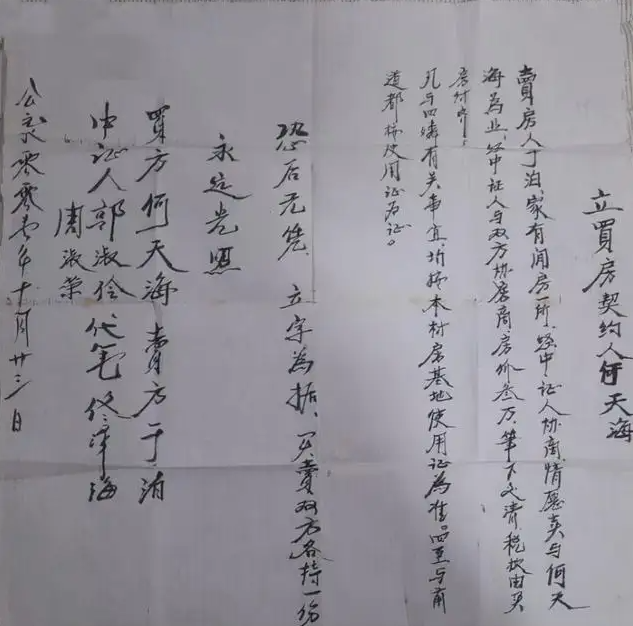 立買房契约人何天海
賣房人于泊,家有闲房一所,经中证人协商,情愿卖与何天
海為业,经中证人与双方协商,房价叁万,笔下交清,税款由买
房付
凡与四鄰有关事宜,均按本村房基地使用证為准。四至与前
道都按使用证为证。
恐后无凭,立字為据,买賣双方各持一份
永远光照
買方何天海 賣方于泊
中证人郭淑伶 代笔佟海
周淑荣
公元零零壹年十月廿三日